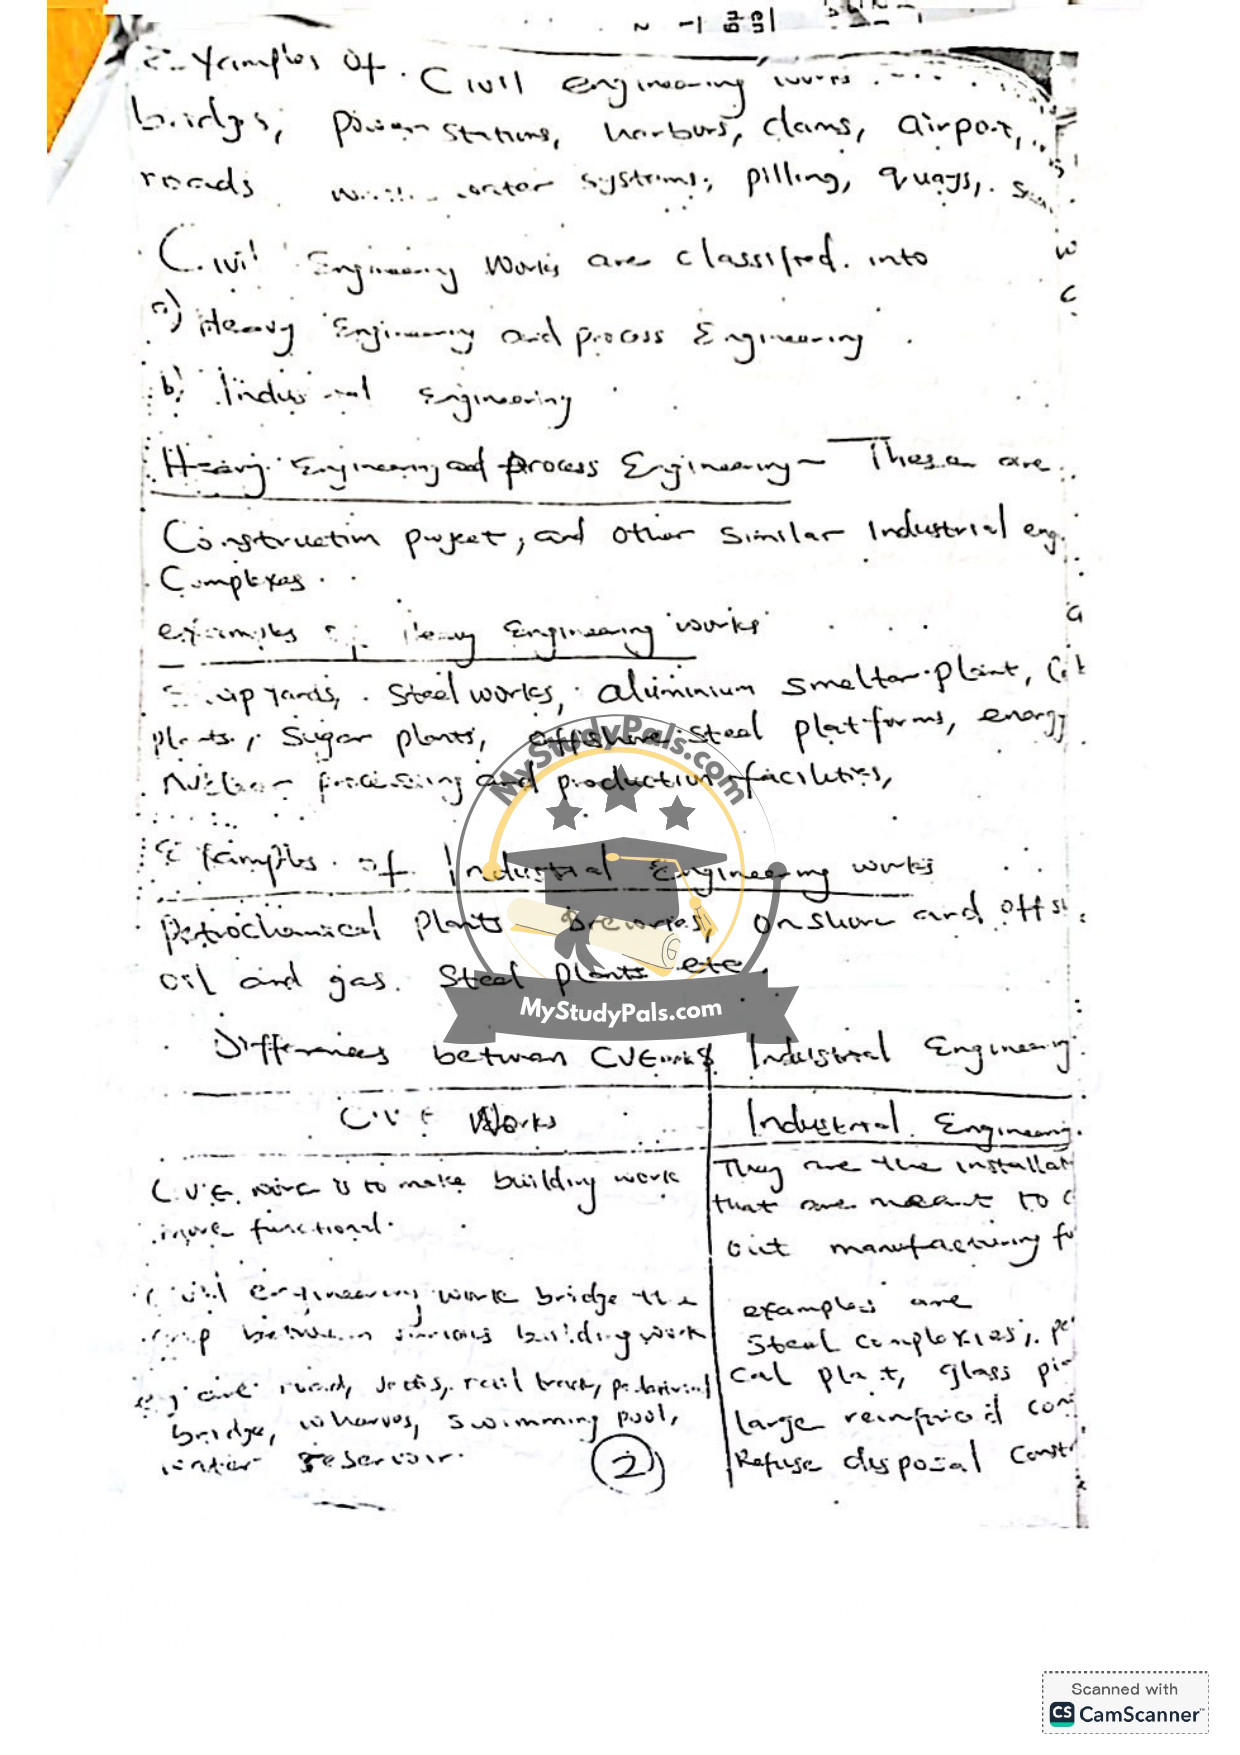 Examples of Civil engineering works
bridges, Power stations, harburs, dams, airport,
roads water systems, pilling, quays,
Civil Engineering Works are classified into
a) Heavy Engineering and process Engineering
b) Industrial engineering
Heavy Engineering and process Engineering - These are
Construction project, and other similar Industrial eng.
Complexes.
examples of Heavy Engineering works
yards, Steel works, aluminium smelter plant,
plants, Sugar plants, offshore steel platforms, energy
Nuclear processing and production facilities,
Examples of Industrial Engineering works
Petrochemical plants breweries, onshore and offs
oil and gas. Steel plants etc.
MyStudyPals.com
MyStudyPals.com
Differences between CVE work & Industrial Engineering
C.V.E Works
Industrial Engineering
C.V.E. work is to make building work
more functional.
Civil engineering work bridge the
gap between various building work
eg are road, rail track, pedestrian
bridge, wharves, swimming pool,
water reservoir.
They are the installat
that are meant to c
out manufacturing fu
examples are
Steel complexies, pe
cal plant, glass
large reinforced con
Refuse disposal const
2
Scanned with
CS CamScanner